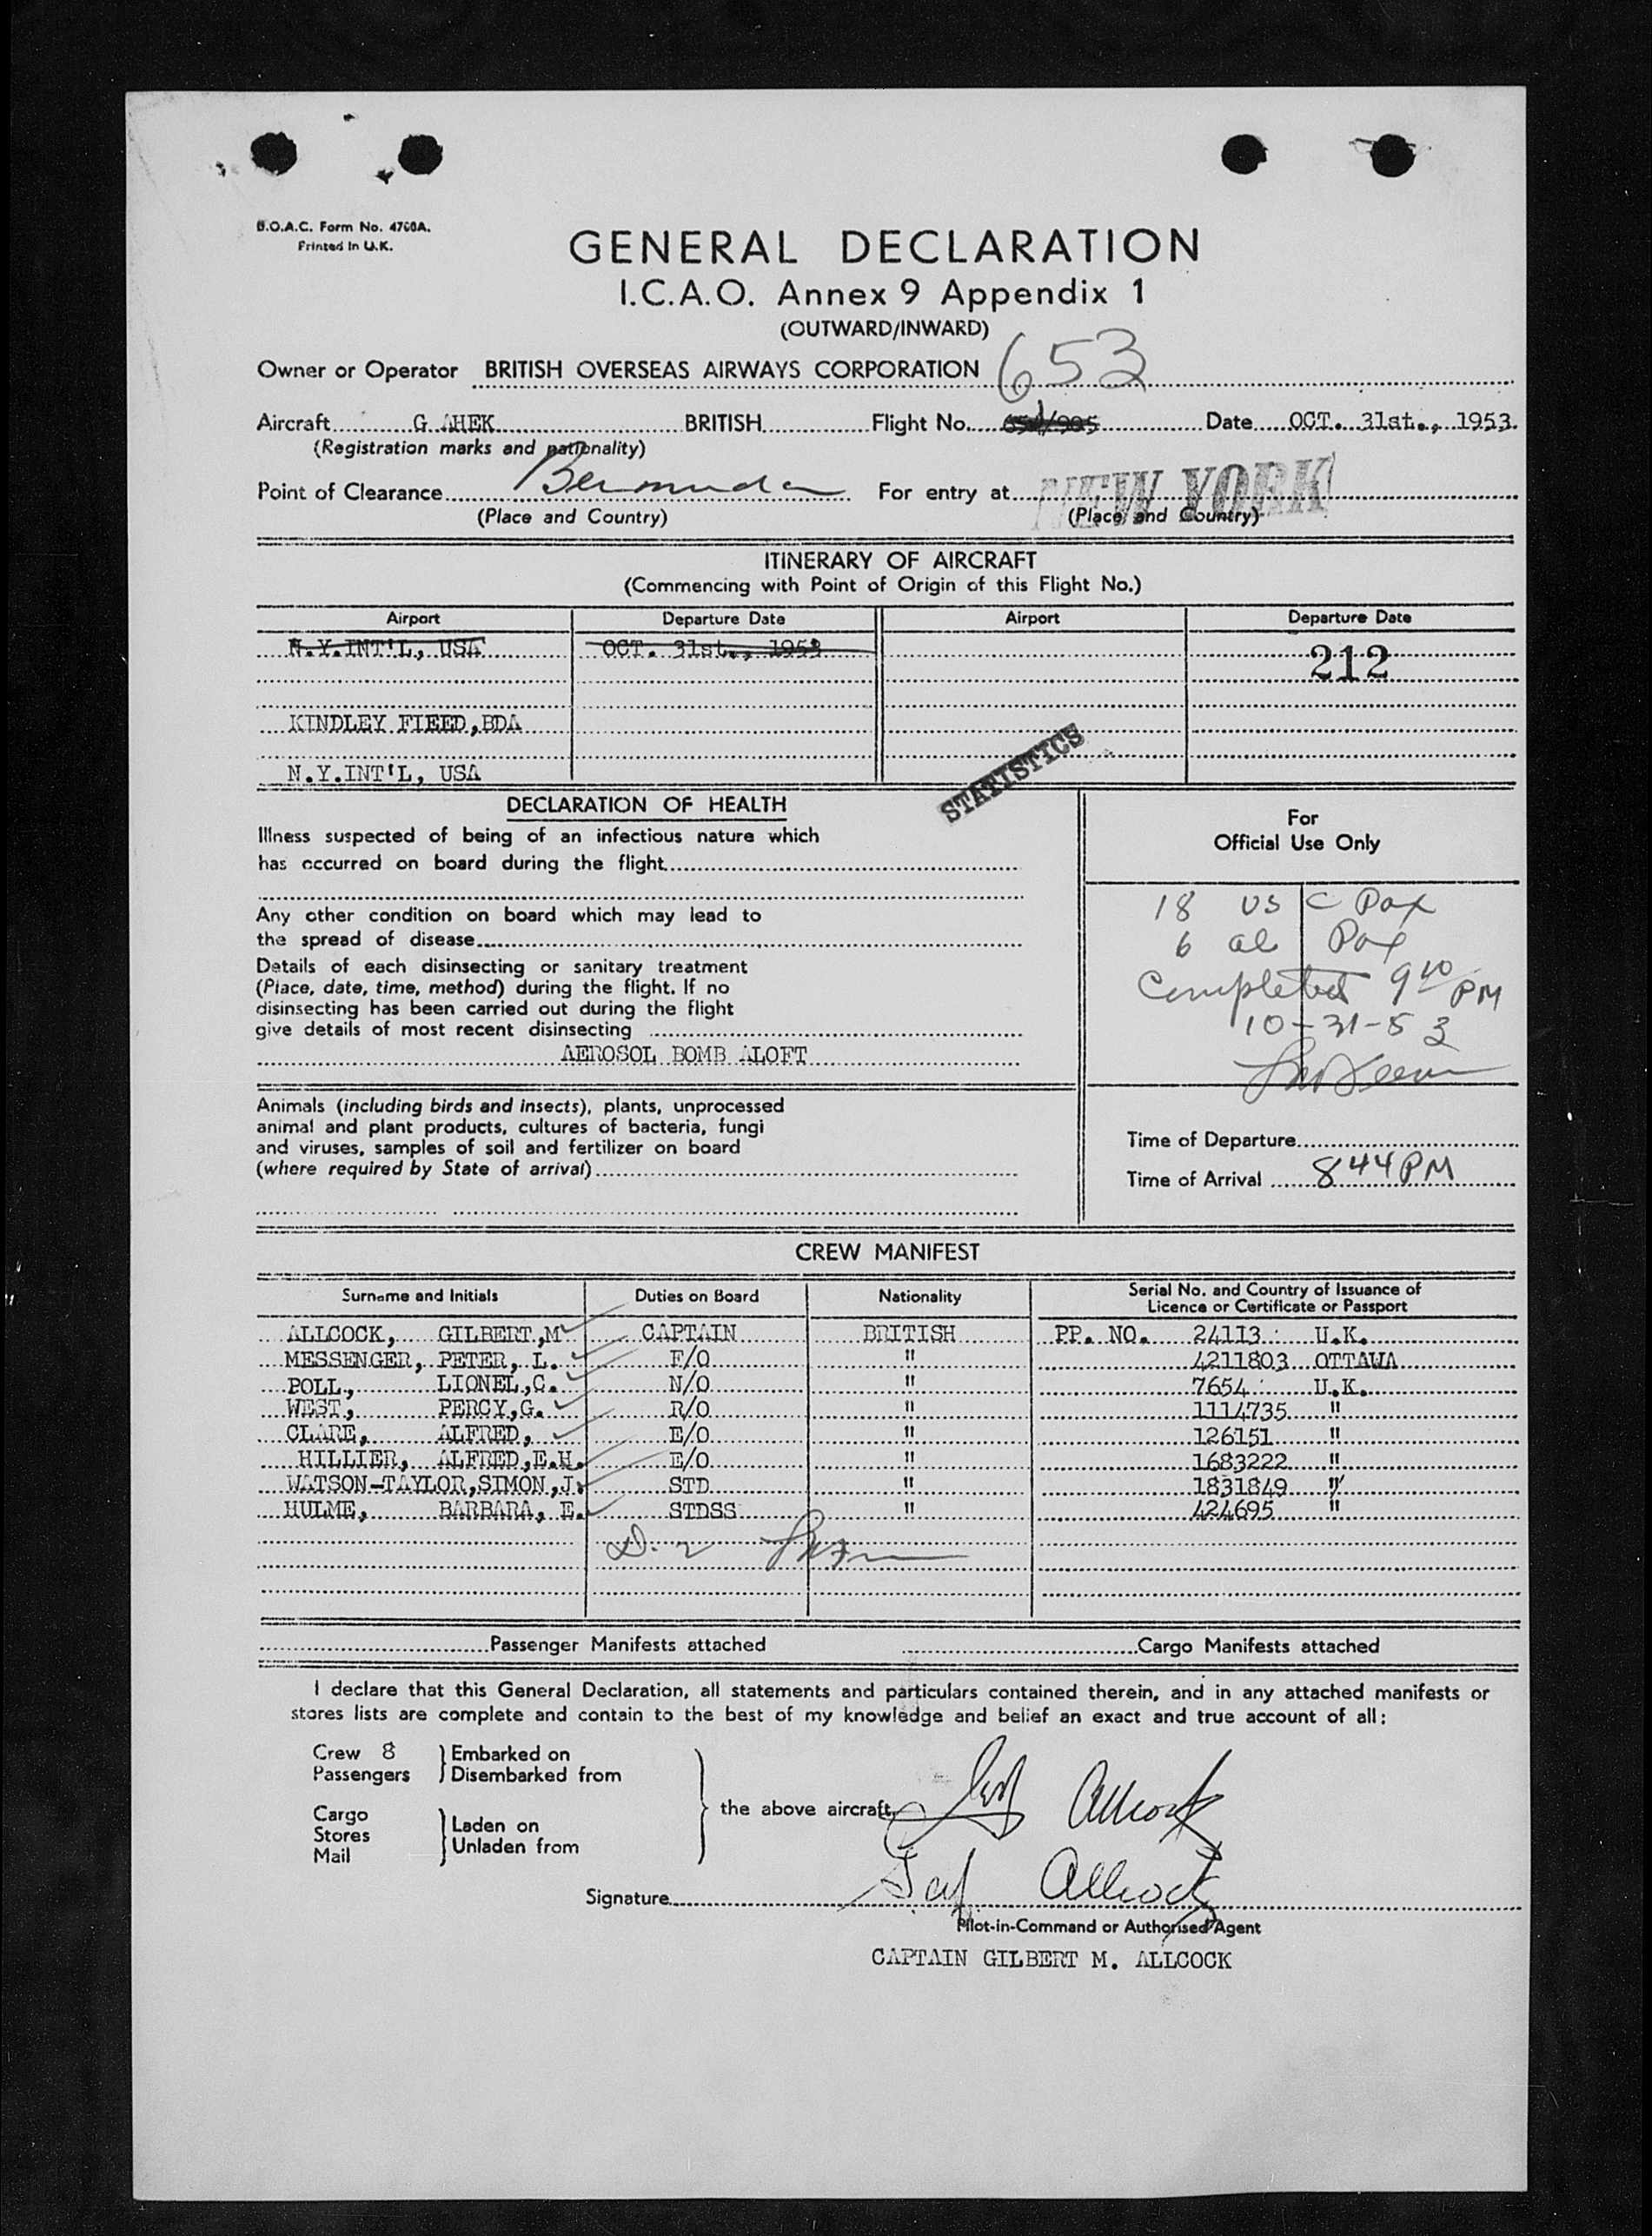 B.O.A.C. Form No. 4760A.
Printed in U.K.
GENERAL DECLARATION
I.C.A.O. Annex 9 Appendix 1
(OUTWARD/INWARD)
Owner or Operator BRITISH OVERSEAS AIRWAYS CORPORATION 653
Aircraft G AHEK BRITISH Flight No. Date OCT. 31st., 1953.
(Registration marks and nationality)
Point of Clearance Bermuda For entry at NEW YORK
(Place and Country) (Place and Country)
ITINERARY OF AIRCRAFT
(Commencing with Point of Origin of this Flight No.)
Airport Departure Date Airport Departure Date
N.Y.INT'L, USA OCT. 31st., 1953 212
KINDLEY FIEED,BDA
N.Y.INT'L, USA
STATISTICS
DECLARATION OF HEALTH
Illness suspected of being of an infectious nature which
has occurred on board during the flight
Any other condition on board which may lead to
the spread of disease
Details of each disinsecting or sanitary treatment
(Place, date, time, method) during the flight. If no
disinsecting has been carried out during the flight
give details of most recent disinsecting
AEROSOL BOMB ALOFT
Animals (including birds and insects), plants, unprocessed
animal and plant products, cultures of bacteria, fungi
and viruses, samples of soil and fertilizer on board
(where required by State of arrival)
For
Official Use Only
18 US C Pax
6 al Pax
Completed 9 10 PM
10-31-53
Time of Departure
Time of Arrival 8 44 PM
CREW MANIFEST
Surname and Initials Duties on Board Nationality Serial No. and Country of Issuance of
Licence or Certificate or Passport
ALLCOCK, GILBERT,M CAPTAIN BRITISH PP. NO. 24113 U.K.
MESSENGER, PETER, L. F/O " 4211803 OTTAWA
POLL, LIONEL,C. N/O " 7654 U.K.
WEST, PERCY,G. R/O " 1114735 "
CLARE, ALFRED, E/O " 126151 "
HILLIER, ALFRED,E.H. E/O " 1683222 "
WATSON-TAYLOR,SIMON,J. STD " 1831849 "
HULME, BARBARA, E. STDSS " 424695 "
Passenger Manifests attached Cargo Manifests attached
I declare that this General Declaration, all statements and particulars contained therein, and in any attached manifests or
stores lists are complete and contain to the best of my knowledge and belief an exact and true account of all:
Crew 8 Embarked on
Passengers Disembarked from
the above aircraft
Cargo
Stores Laden on
Mail Unladen from
Allcock
Signature Allcock
Pilot-in-Command or Authorised Agent
CAPTAIN GILBERT M. ALLCOCK